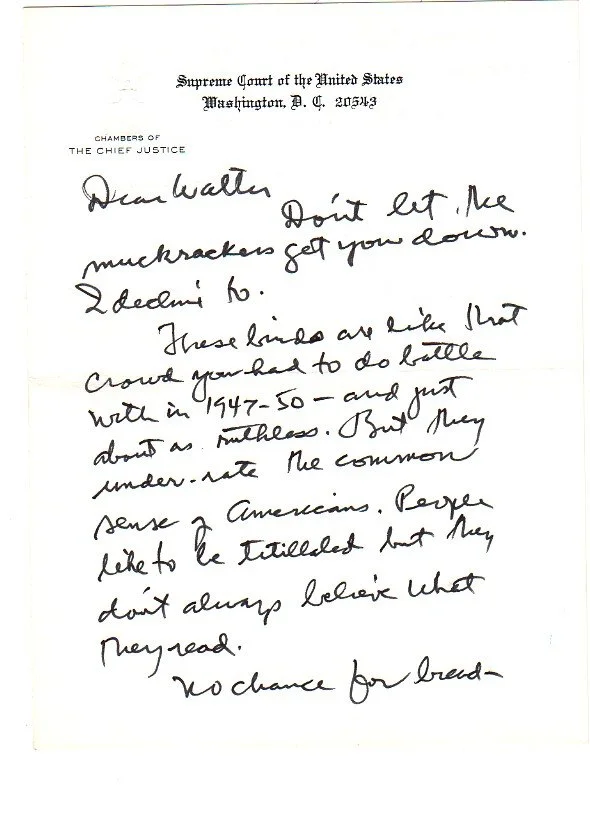 Supreme Court of the United States
Washington, D. C. 20543
CHAMBERS OF
THE CHIEF JUSTICE
Dear Walter
Don't let the
muckrackers get you down.
I decline to.
These birds are like that
crowd you had to do battle
with in 1947-50 – and just
about as ruthless. But they
under-rate the common
sense of Americans. People
like to be titillated but they
don't always believe what
they read.
No chance for bread–